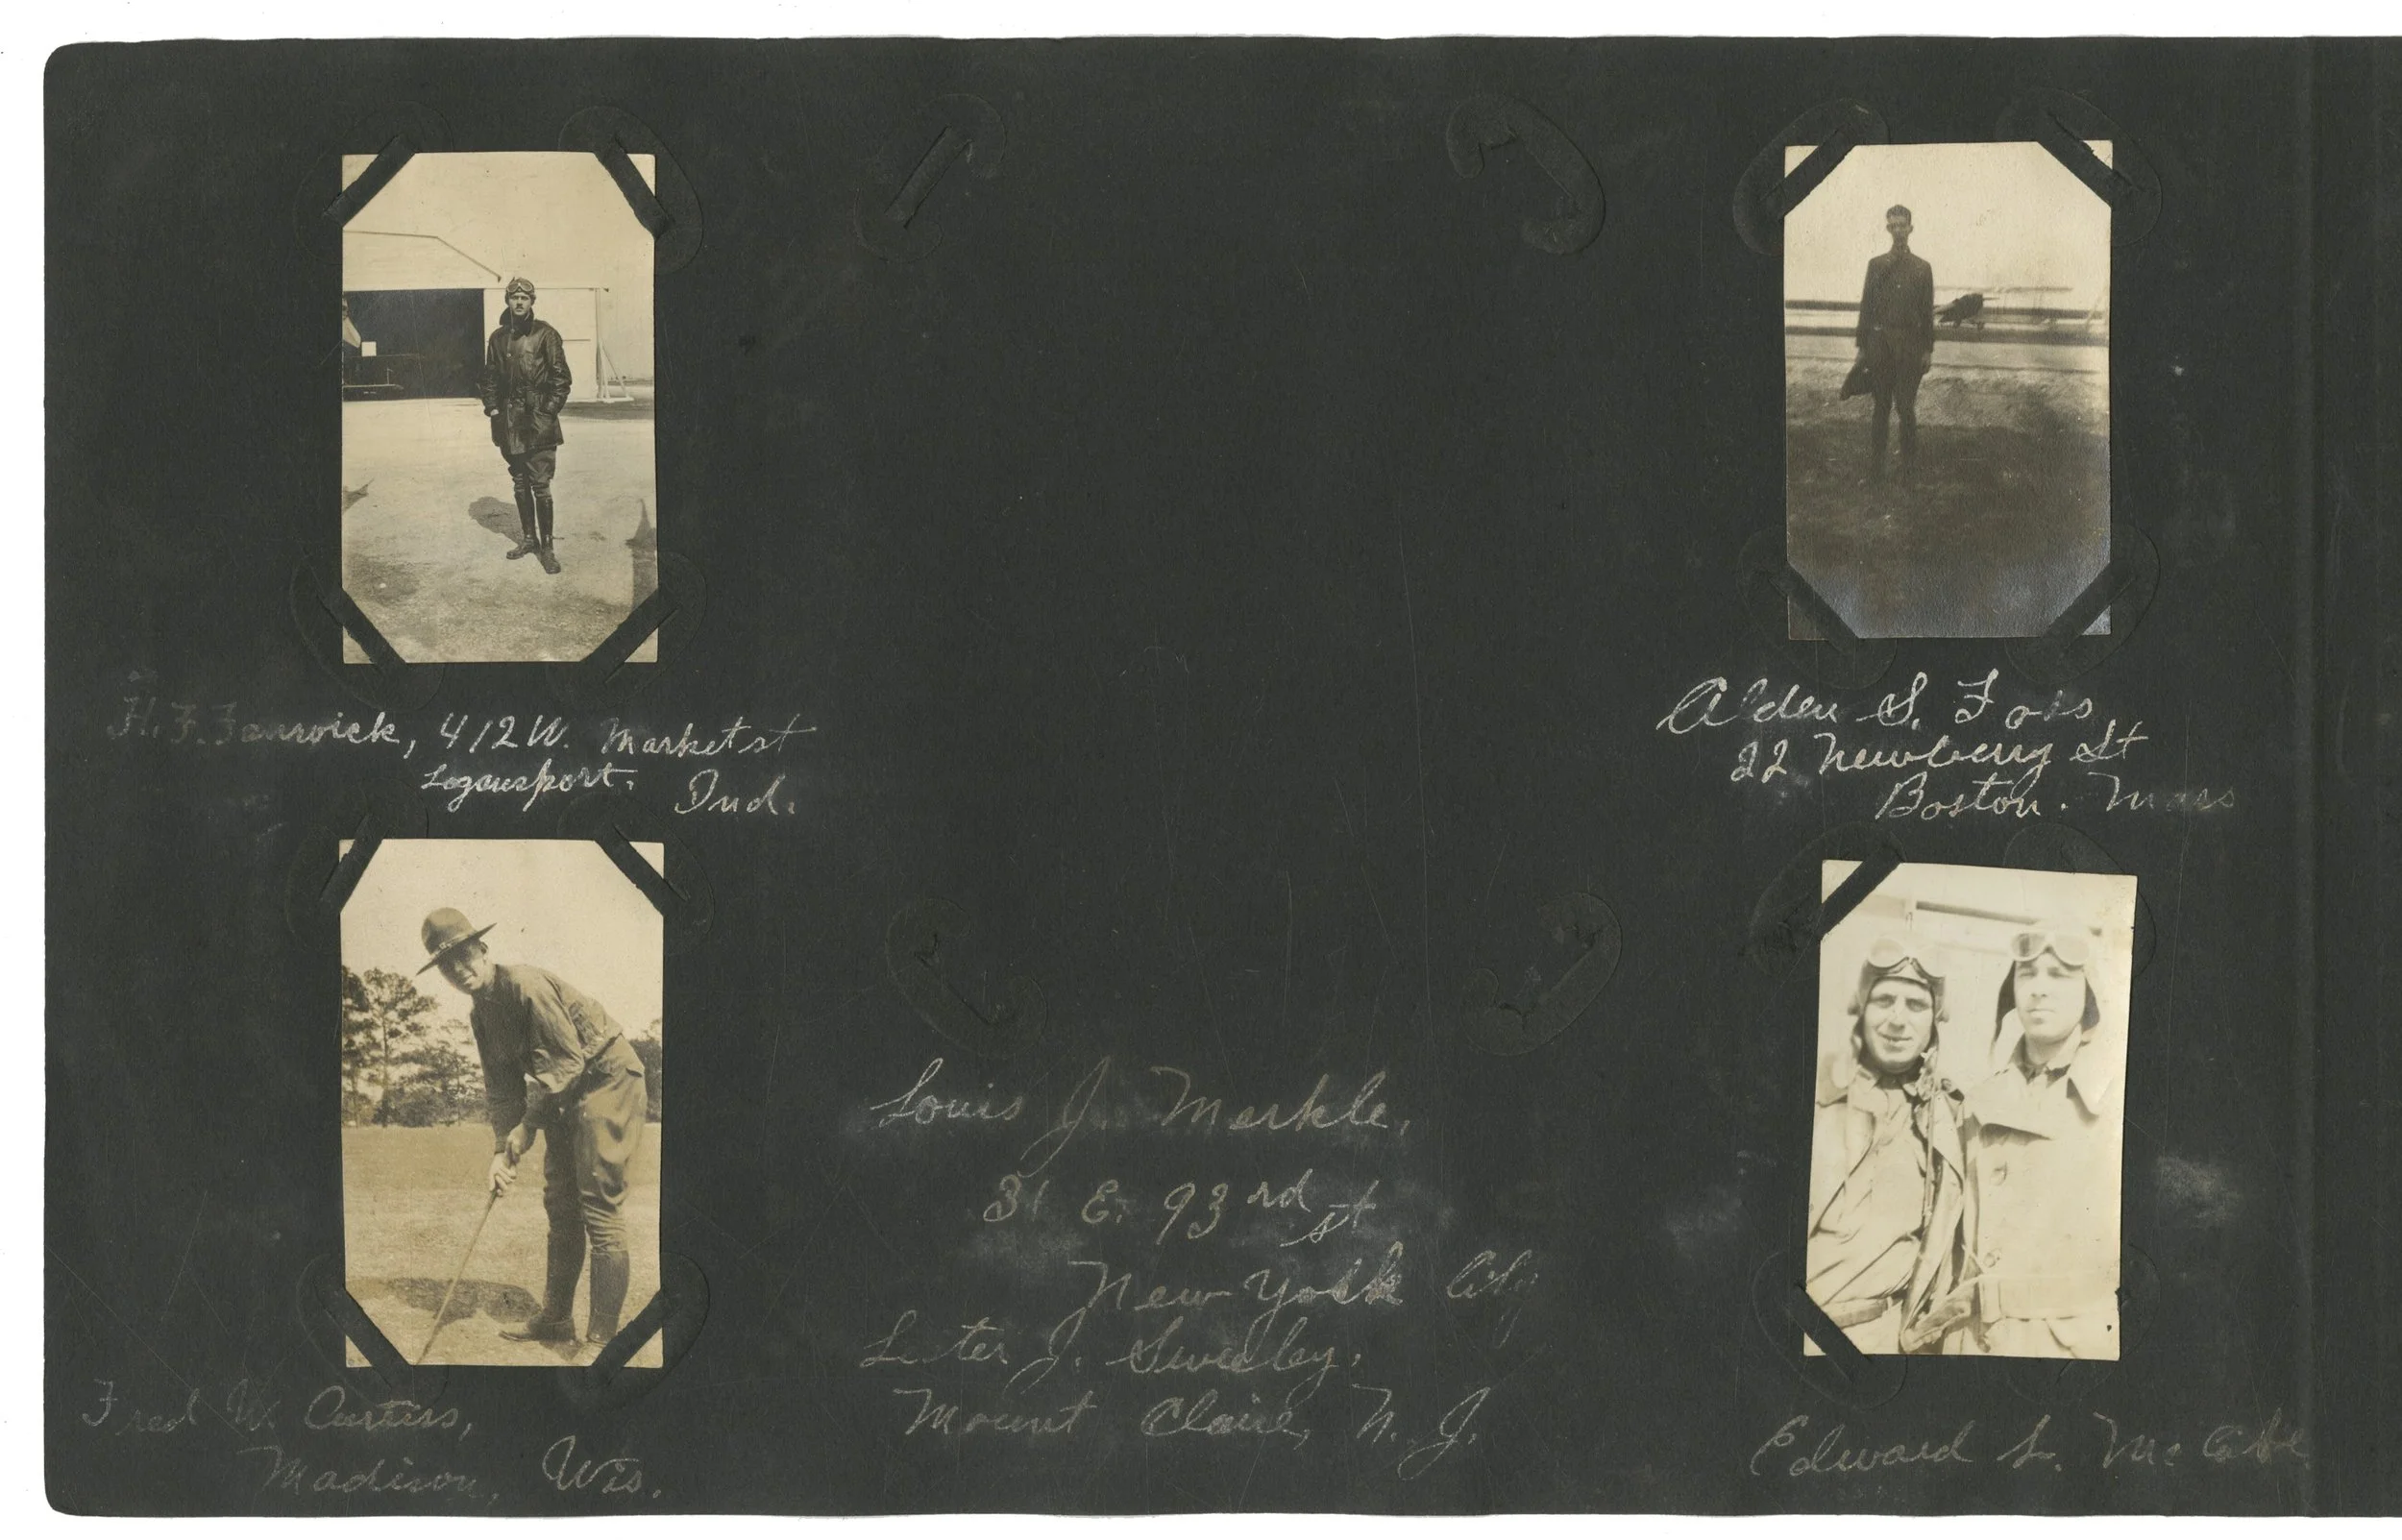 H. F. Fanwick, 412 W. Market st
Logansport. Ind.
Alden S. Foss
22 Newberry St
Boston. Mass
Louis J. Merkle,
31 E. 93rd st
New York City
Fred W. Curtiss,
Madison, Wis.
Lester J. Sweeley,
Mount Claire, N. J.
Edward L. McCabe